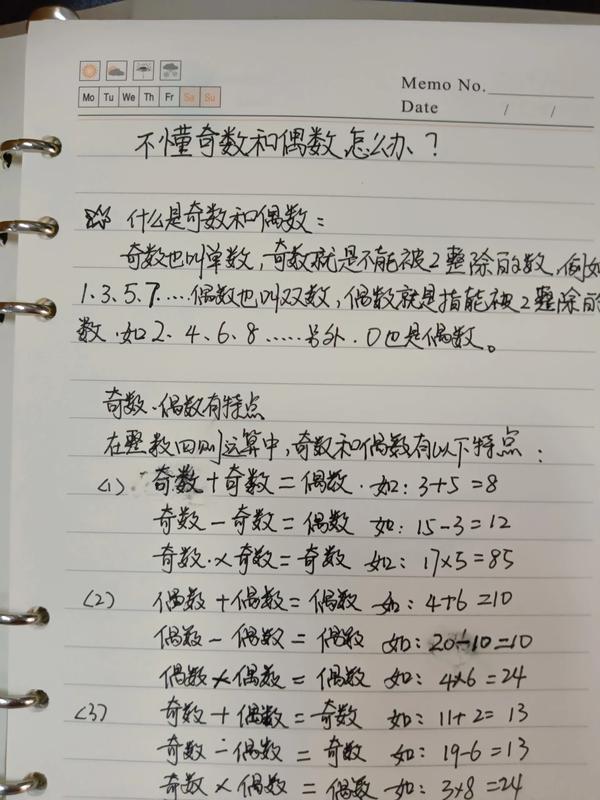 Memo No.
Mo Tu We Th Fr Sa Su
Date / /
不懂奇数和偶数怎么办？
什么是奇数和偶数：
奇数也叫单数，奇数就是不能被2整除的数，例如
1.3.5.7.....偶数也叫双数，偶数就是指能被2整除的
数.如2、4、6、8.....另外.0也是偶数。
奇数、偶数有特点
在整数四则运算中，奇数和偶数有以下特点：
(1) 奇数+奇数=偶数.如：3+5=8
奇数-奇数=偶数 如：15-3=12
奇数.×奇数=奇数 如：17×5=85
(2) 偶数+偶数=偶数 如：4+6=10
偶数-偶数=偶数 如：20-10=10
偶数×偶数=偶数 如：4×6=24
(3) 奇数+偶数=奇数 如：11+2=13
奇数-偶数=奇数 如：19-6=13
奇数×偶数=偶数 如：3×8=24